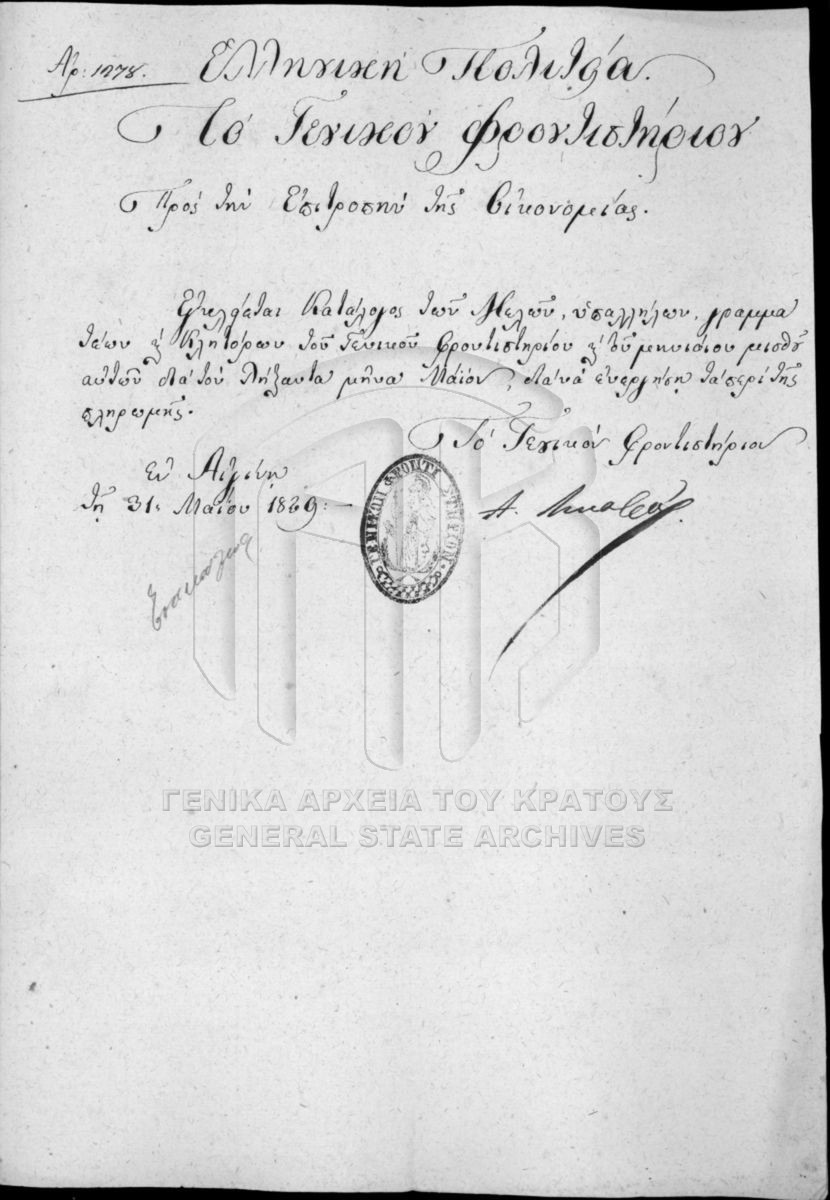 Αρ: 1278.
Ελληνική Πολιτεία.
Το Γενικόν Φροντιστήριον
Πρός την Επιτροπήν της Οικονομείας.
Εγκλείεται Κατάλογος των Μελών, υπαλλήλων, γραμμα
τέων & Κλητόρων του Γενικού Φροντιστηρίου & του μηνιαίου μισθού
αυτών διά τον λήξαντα μήνα Μαΐον, διά να ενεργήση τα περί της
πληρωμής.
Το Γενικόν Φροντιστήριον
Εν Αιγίνη
τη 31. Μαΐου 1829: -
Α.
ΓΕΝΙΚΟΝ ΦΡΟΝΤΙΣΤΗΡΙΟΝ
ΓΕΝΙΚΑ ΑΡΧΕΙΑ ΤΟΥ ΚΡΑΤΟΥΣ
GENERAL STATE ARCHIVES